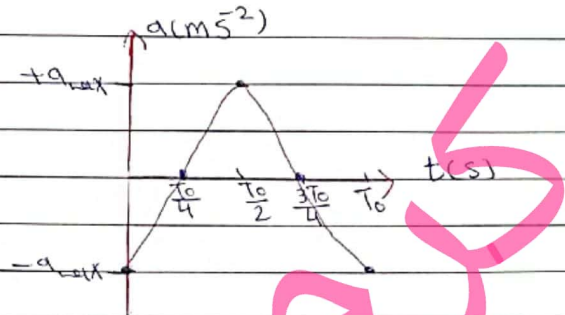 a(ms⁻²)
+a_max
t(s)
T₀/4 T₀/2 3T₀/4 T₀
-a_max